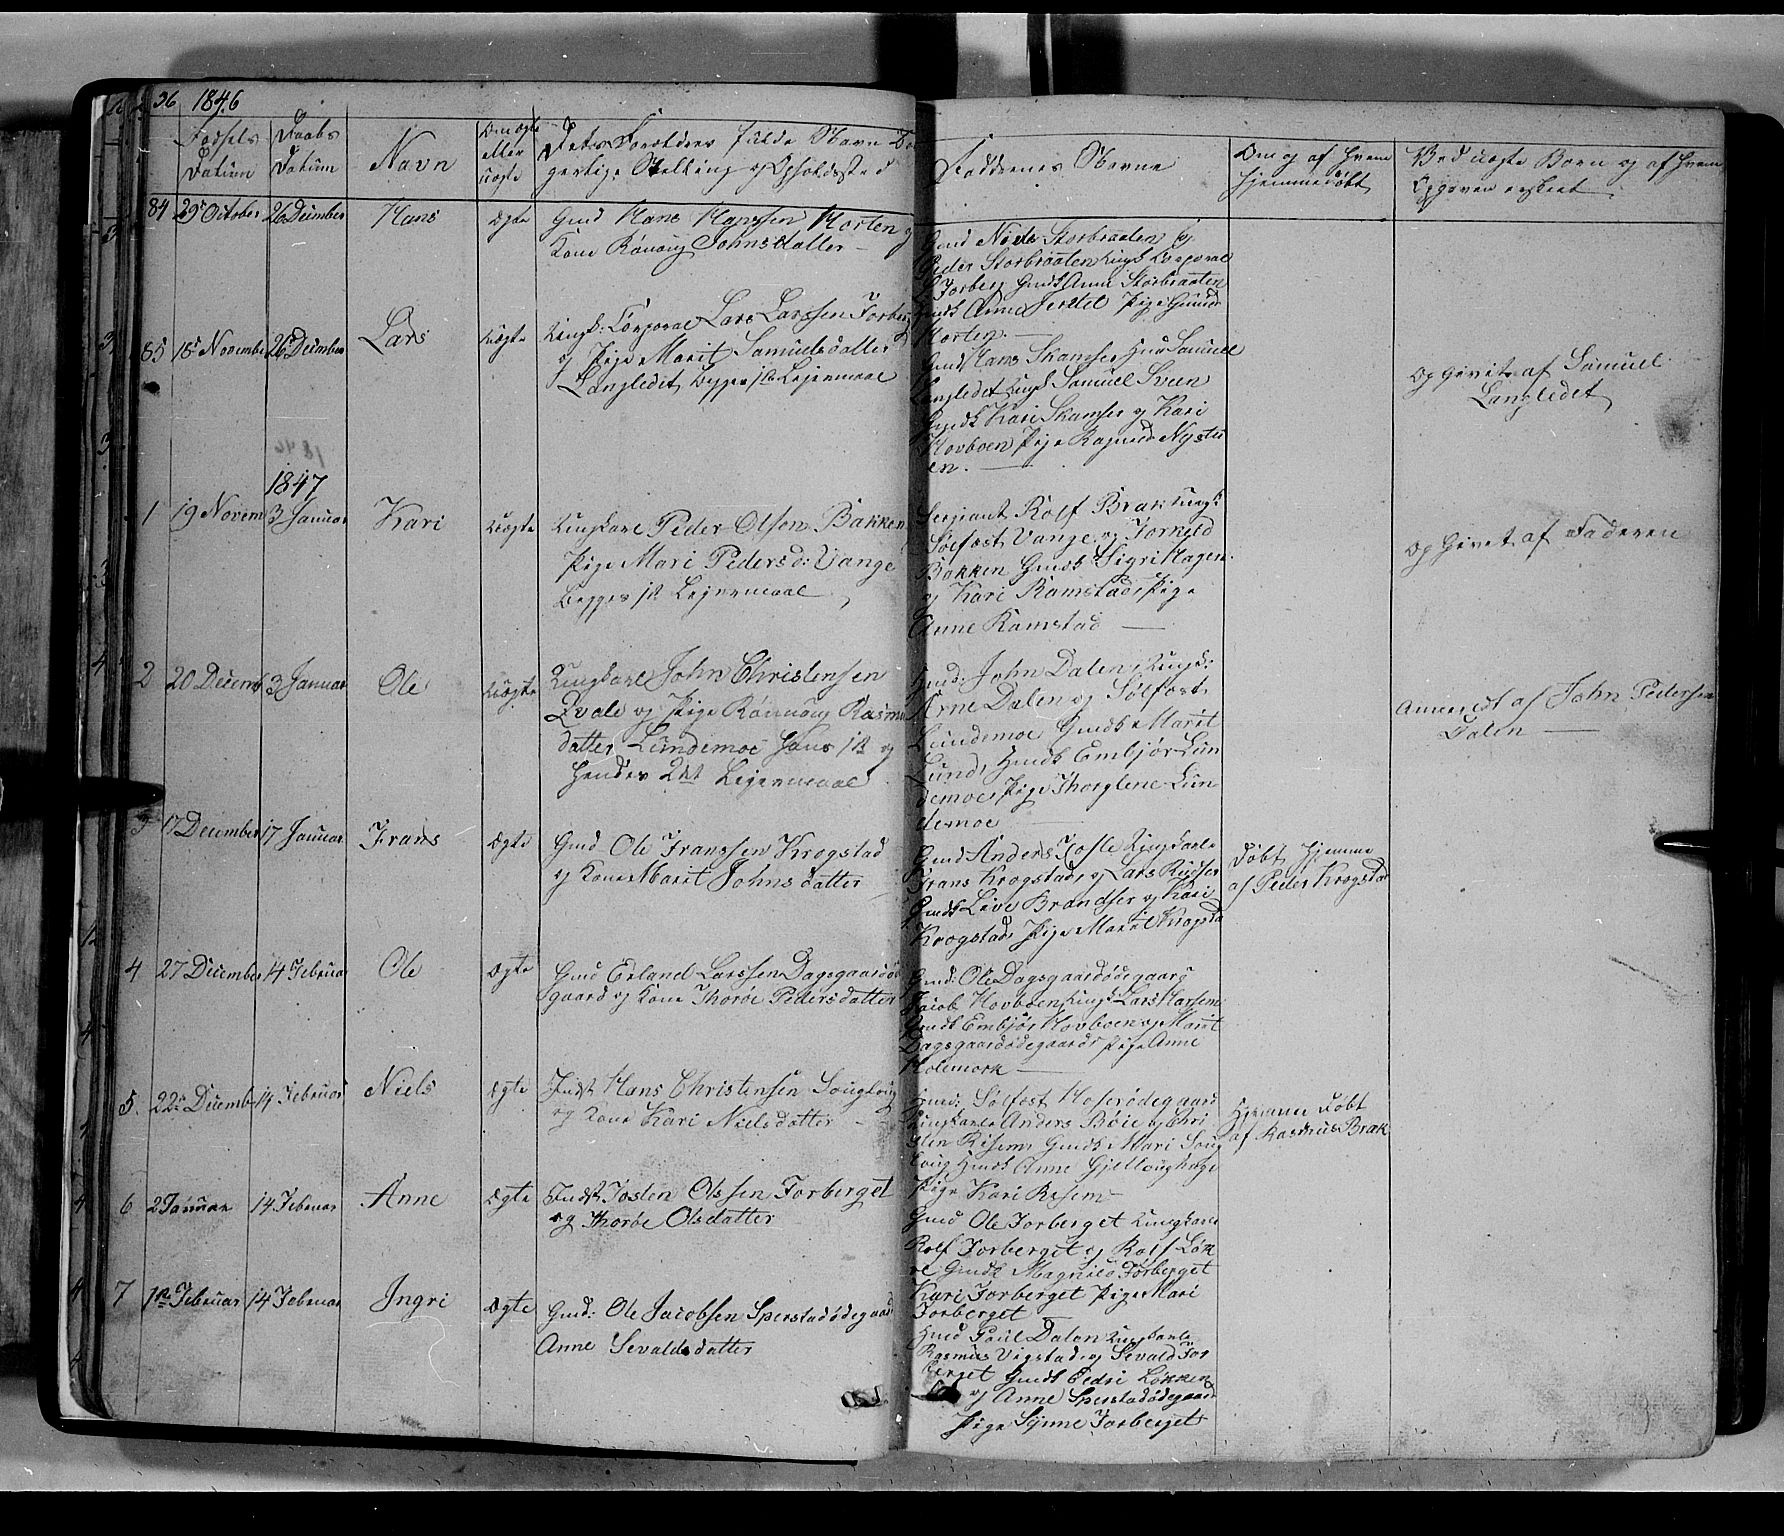 36 1846
Fødsels Datum
Daabs Datum
Navn
Om ægte eller uægte
Dets Forældres fulde Navn Bor
gerlige Stilling og Opholdssted
Faddernes Navne
Om og af hvem
hjemmedøbt
Ved uægte Børn og af hvem
Opgiven er skeet
84 29 October 26 December Hans ægte
Gmd Hans Hanssen Horten og
Kone Rønnaug Johnsdatter
Gmd Niels Storbraaten og
Peder Storbraaten Ungk Corporal
L Forberg Gmdk Anna Storbraaten
Gmdk Anne Jertlet Pige Gunor
Horten
85 18 November 26 December Lars uægte
Ungk: Corporal Lars Larssen Forberg
og Pige Marit Samuelsdatter
Langledet begges 1te Lejermaal
Gmd Hans Skamser Hmd Samuel
Langledet Ungk Samuel Sveen
Gmdk Kari Skamser og Kari
Hovboen Pige Ragnild Nystu
en.
Opgivet af Samuel
Langledet
1847
1 19 Novem 3 Januar Kari uægte
Ungkarl Peder Olsen Bakken
Pige Mari Pedersd: Vange
begges 1te Lejermaal
Sergiant Rolf Brak Ungk
Solfest Vange og Torkild
Bakken Gmdk Sigri Hagen
og Kari Ramstad Pige
Anne Ramstad
Opgivet af Faderen
2 20 Decemb 3 Januar Ole uægte
Ungkarl John Christensen
Qvale og Pige Rønnaug Rasmus
datter Lundemoe hans 1te og
hendes 2det Lejermaal
Hmd: John Dalen Ungk:
Arne Dalen og Solfest
Lundemoe Gmdk Marit
Lund, Hmdk Embjør Lun
demoe Pige Thorglene Lun
demoe
Anmeldt af John Pedersen
Dalen
3 17 December 17 Januar Frans ægte
Gmd Ole Franssen Krogstad
og Kone Marit Johnsdatter
Gmd Anders Tofte Ungkarle
Frans Krogstad, og Lars Rudser
Gmdk Live Brandser og Kari
Krogstad Pige Marit Krogsta
Døbt hjemme
af Peder Krogstad
4 27 December 14 Februar Ole ægte
Gmd Erland Larssen Dagsgaardøde
gaard og Kone Thorøe Pedersdatter
Gmd: Ole Dagsgaardødegaard
Jacob Hovboen Ungk Lars
Gmdk Embjør Hovboen og Marit
Dagsgaardødegaard Pige Anne
Holemork
5 22 Decemb 14 Februar Niels ægte
Indst Hans Christensen Sougloug
og Kone Kari Nielsdatter
Hmd: Solfest Hoserødegaard
Ungkarle Anders Bøie og Chri
sten Risem Gmdk Mari Soug
loug Hmdk Anne Gjetloughage
Pige Kari Risem
Hjemme døbt
af Rasmus Brak
6 2 Januar 14 Februar Anne ægte
Indst Josten Olssen Forberget
og Thorøe Olsdatter
Gmd Ole Forberget Ungkarle
Rolf Forberget og Rolf Løk
re Gmdk Magnild Forberget
Kari Forberget Pige Mari
Forberget
7 1te Februar 14 Februar Ingri ægte
Gmd: Ole Jacobsen Sperstadødegaard
Anne Sevaldsdatter
Hmd Paul Dalen Ungkarle
Rasmus Vigstad, og Sevald For
berget Gmdk Pedri Løkken
og Anne Sperstadødegaard
Pige Synne Forberget